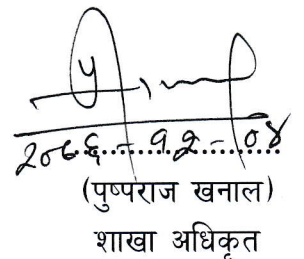 २०७६-१२-०४
(पुष्पराज खनाल)
शाखा अधिकृत